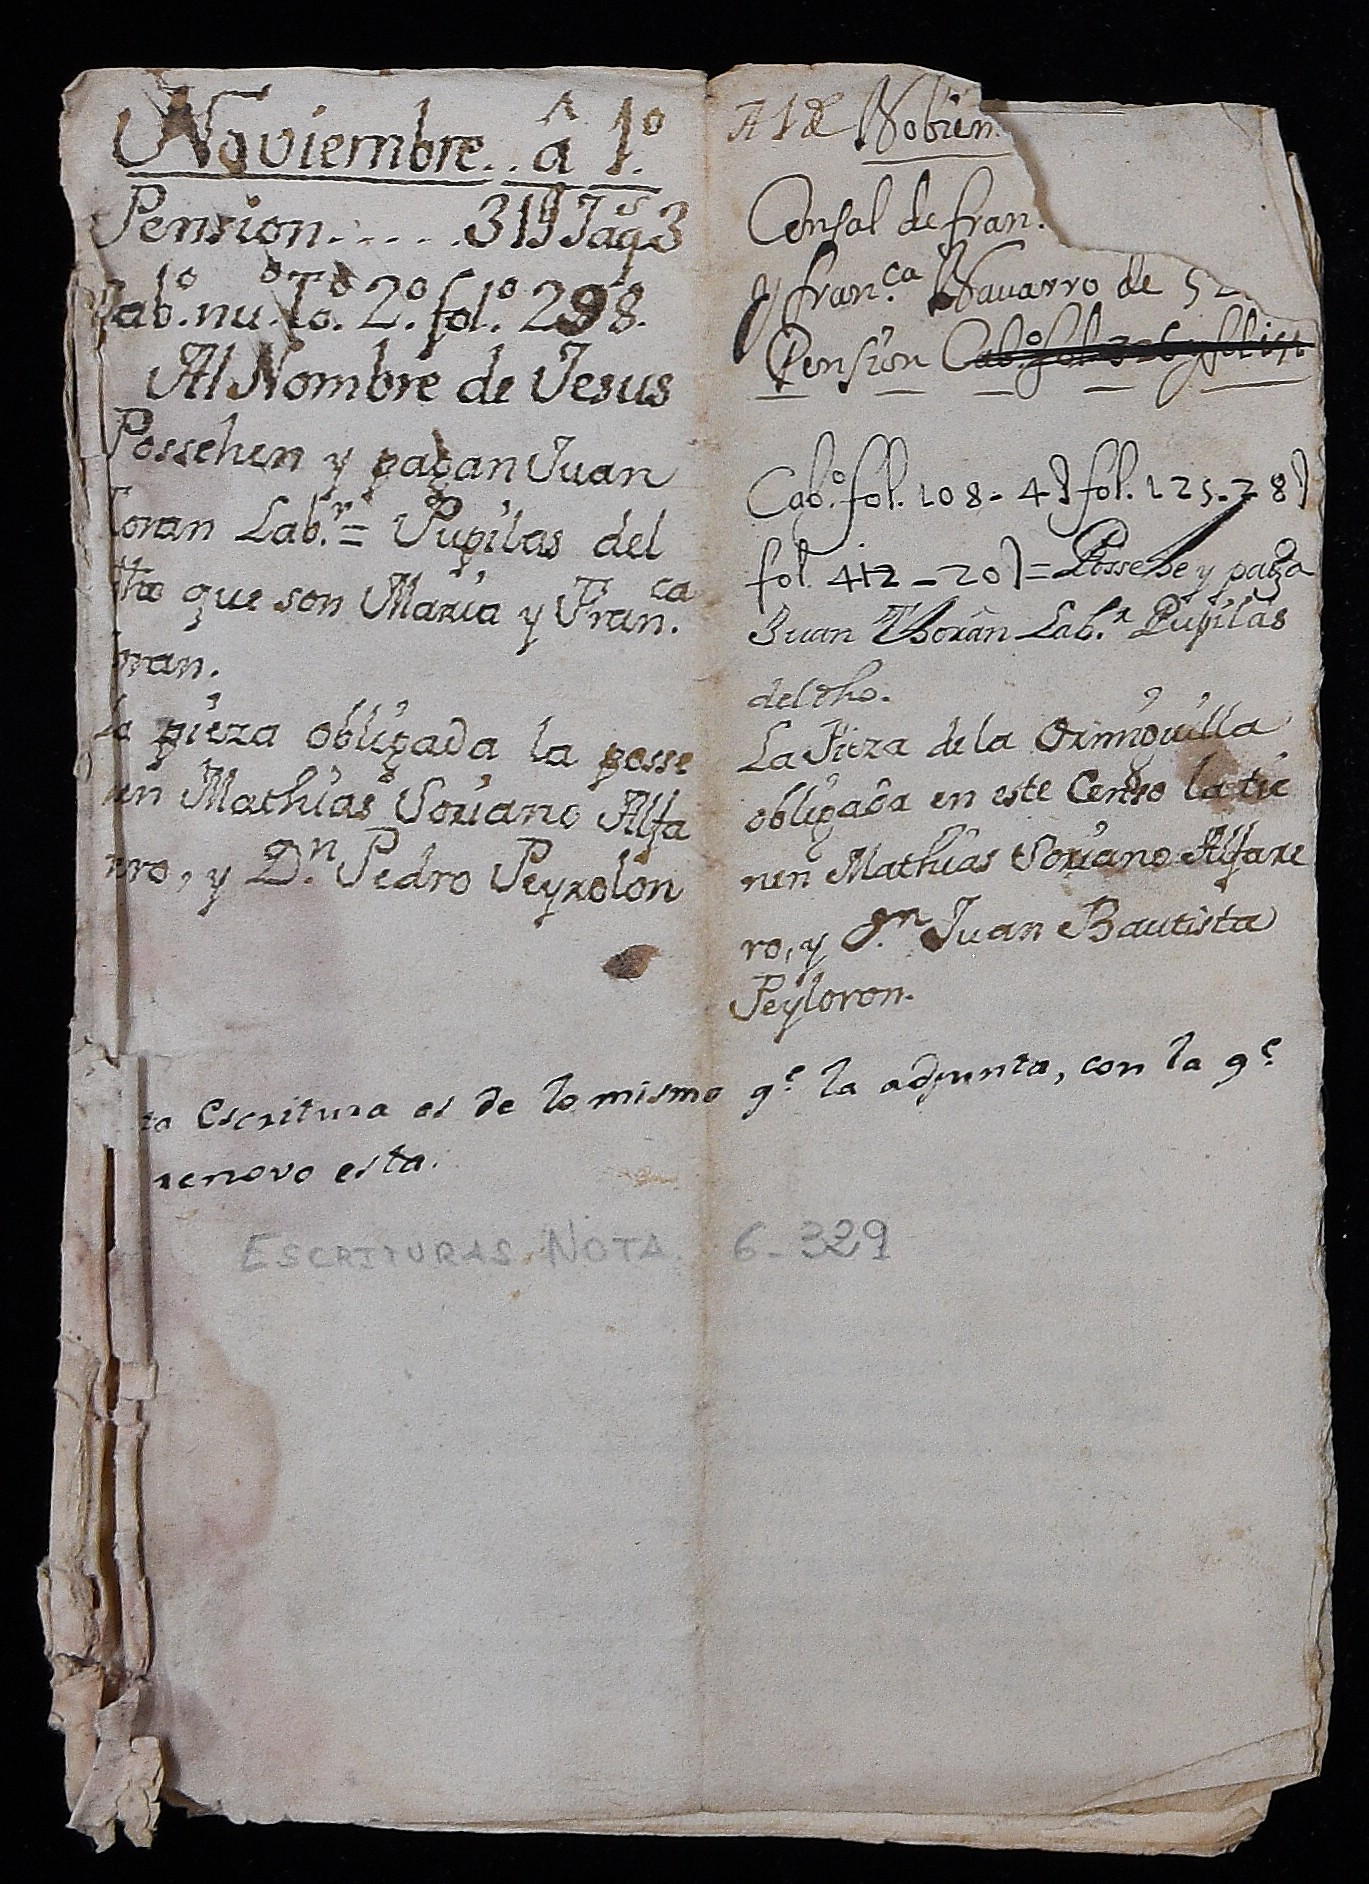 Noviembre.. â 1º.
Pension..... 31 Jaq.s 3
Cab.º nu.º To.º 2.º fol.º 298.
Al Nombre de Jesus
Possehen y pagan Juan
Toran Lab.r = Pupilas del
dho que son Maria y Fran.ca
Toran.
La pieza obligada la posse
hen Mathias Soriano Alfa
rro, y D.n Pedro Peyrolon
A 1 de Nobiem.
Censal de fran.
y fran.ca Navarro de
Pension
Cab.º fol. 108 - 4) fol. 125 - 28)
fol. 412 - 20) = Possehe y paga
Juan Thoran Lab.r Pupilas
del dho.
La Pieza de la
obligada en este Censo la tie
nen Mathias Soriano Alfare
ro, y D.n Juan Bautista
Peyloron.
ta Escritura es de lo mismo q.e la adjunta, con la q.e
renovo esta.
ESCRITURAS NOTA. 6-329